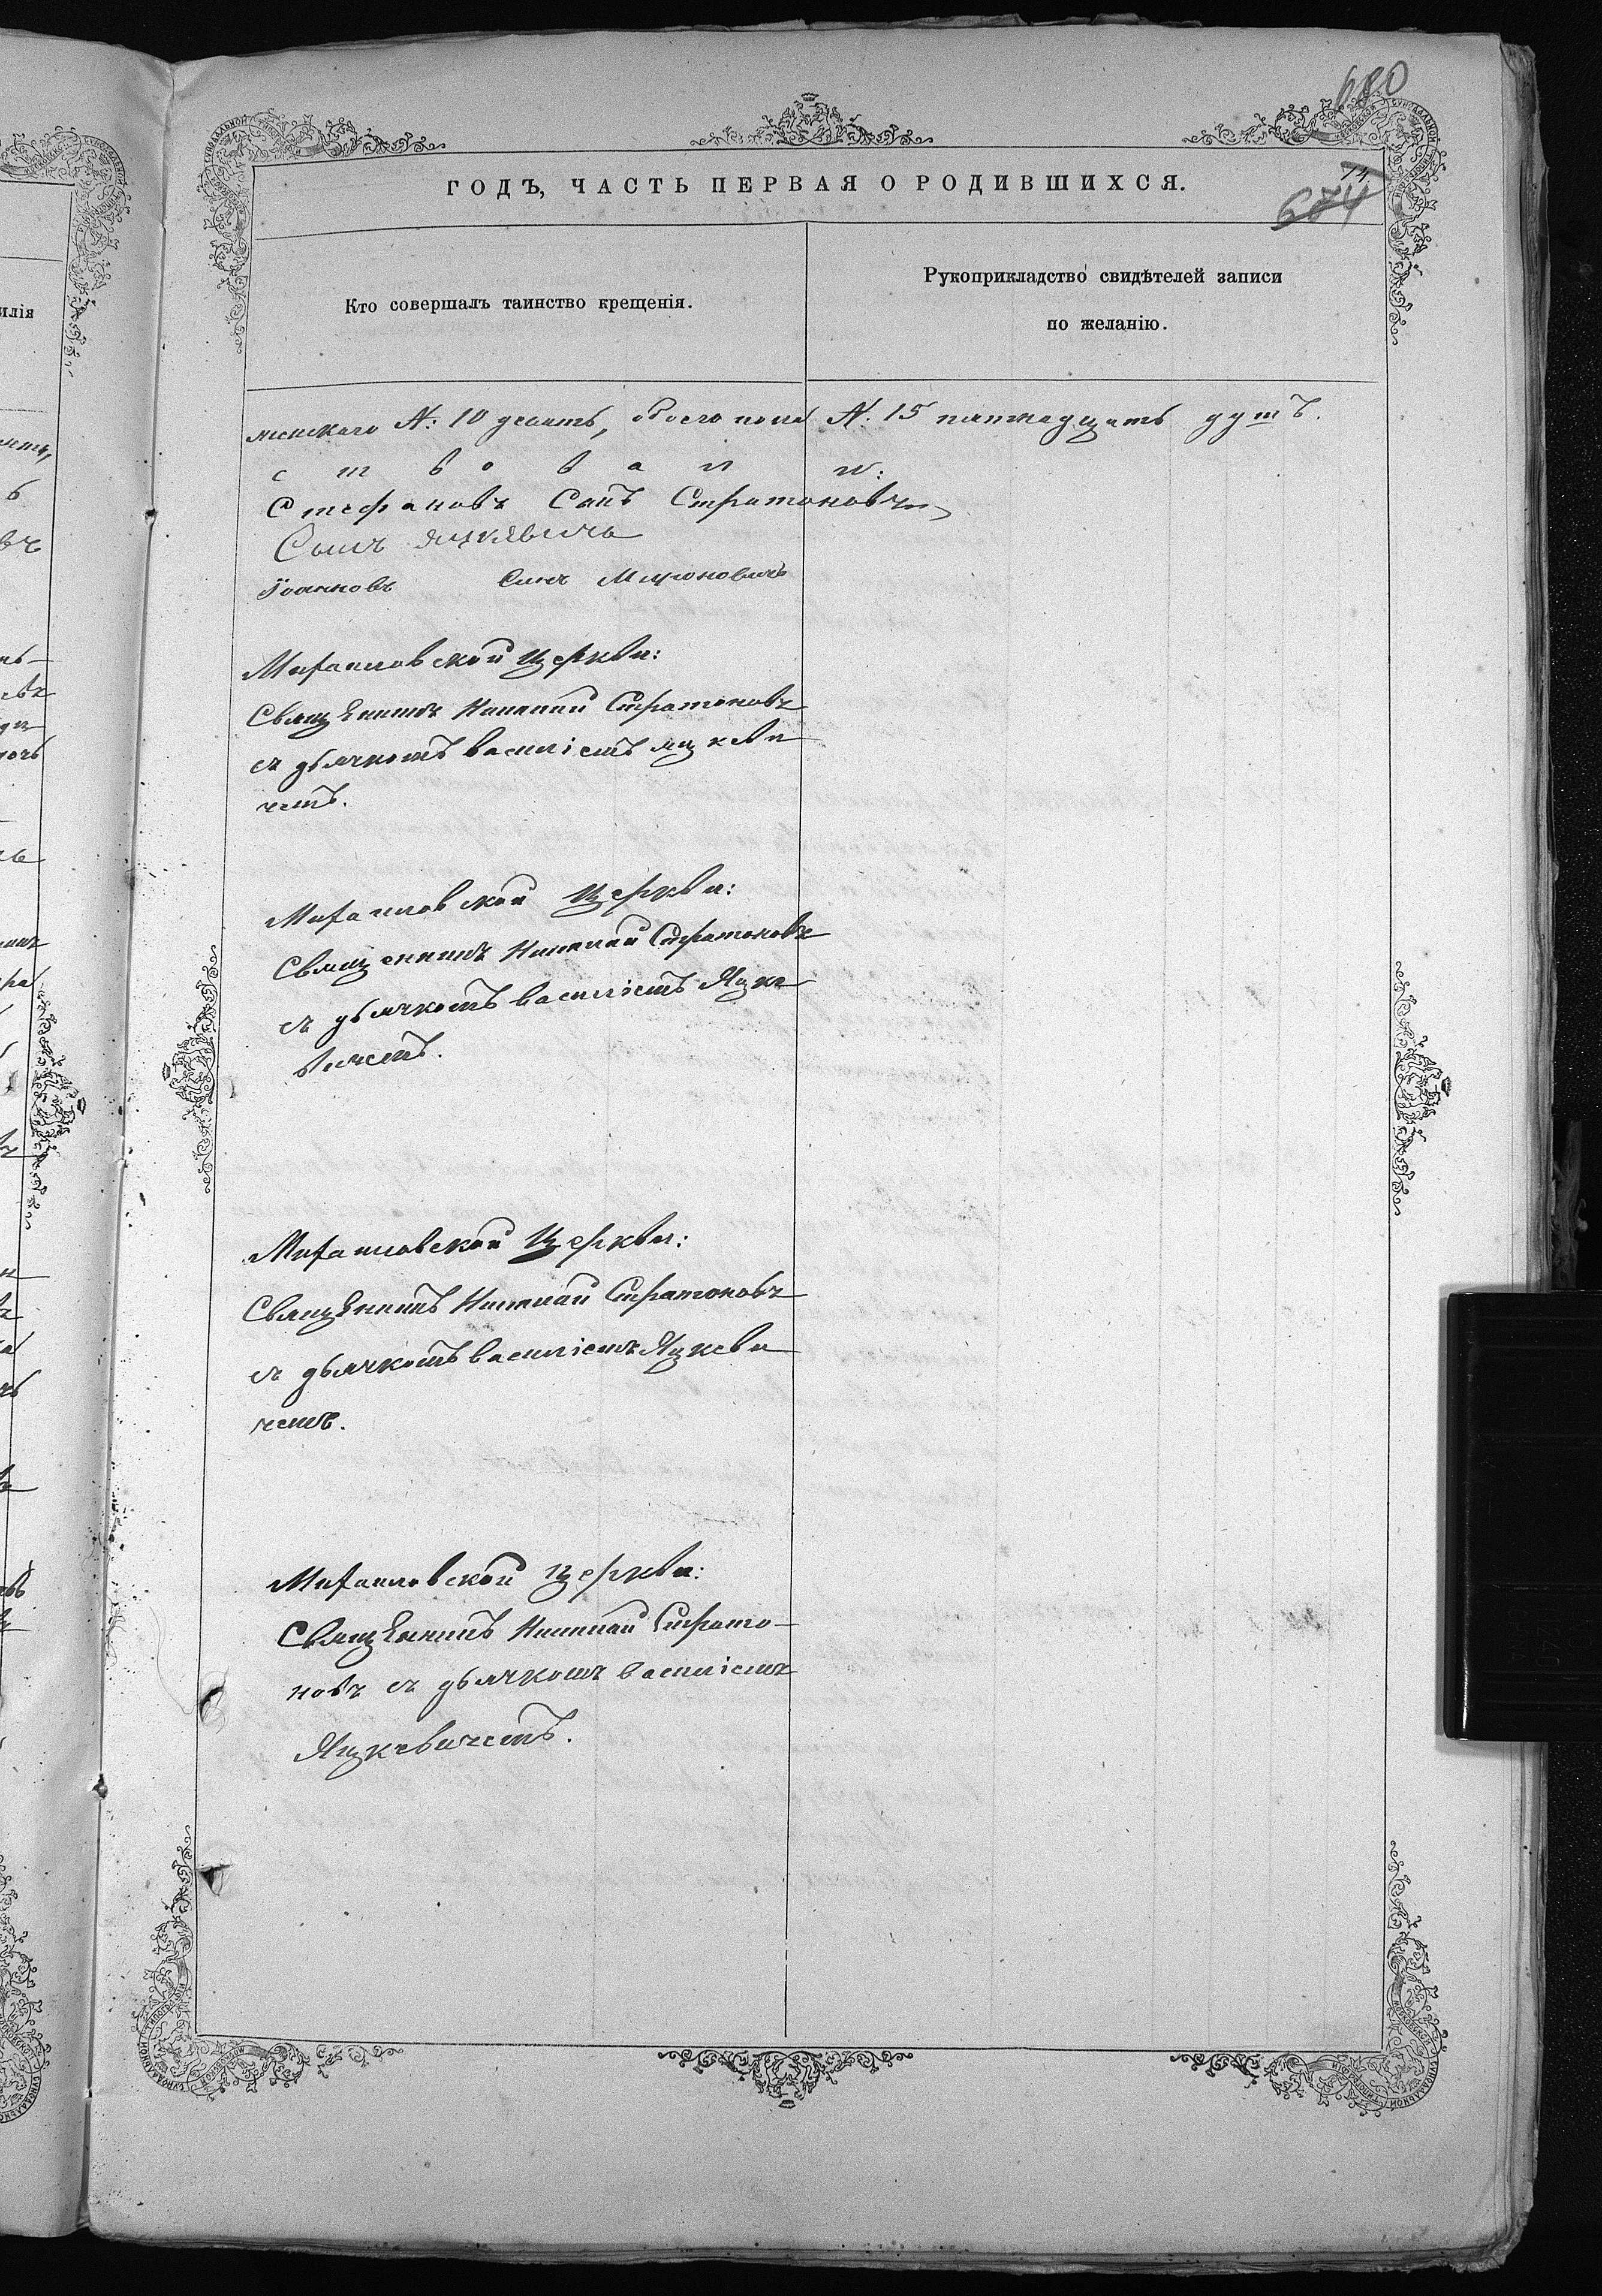 680
ГОДЪ, ЧАСТЬ ПЕРВАЯ О РОДИВШИХСЯ.
674
Кто совершалъ таинство крещенія.
Рукоприкладство свидѣтелей записи
по желанію.
женскаго №: 10 десять, обоего пола №: 15 пятнадцать душъ.
с т в о в а л и:
Стефановъ Сынъ Стратоновъ
Сынъ Яцкевичъ
Іоанновъ Сынъ Мироновичъ
Михаиловской Церкви:
Священникъ Николай Стратоновъ
съ дьячкомъ Василіемъ Яцкеви
чемъ.
Михаиловской Церкви:
Священникъ Николай Стратоновъ
съ дьячкомъ Василіемъ Яцке
вичемъ.
Михаиловской Церкви:
Священникъ Николай Стратоновъ
съ дьячкомъ Василіемъ Яцкеви
чемъ.
Михаиловской Церкви:
Священникъ Николай Страто-
новъ съ дьячкомъ Василіемъ
Яцкевичемъ.